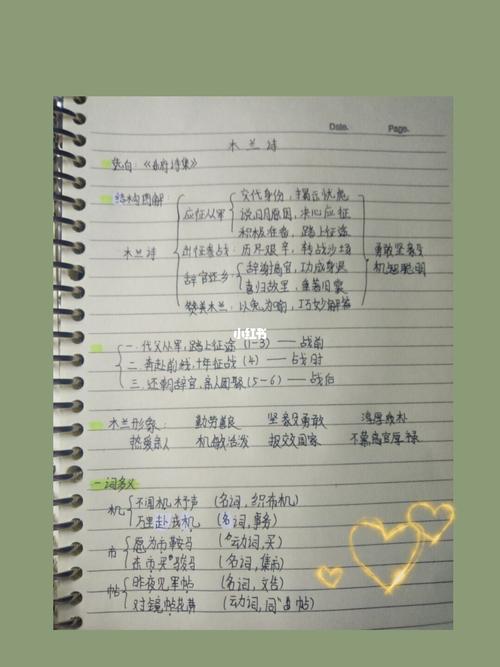 Date. Page.
木兰诗
选自:《乐府诗集》
结构图解:
应征从军
交代身份,揭示忧愁
说明原因,决心应征
积极准备,踏上征途
木兰诗
出征参战:历尽艰辛,转战沙场
勇敢坚毅
机智聪明
辞官还乡
辞谢高官,功成身退
喜归故里,重著旧裳
赞美木兰:以兔为喻,巧妙解答
小红书
一.代父从军,踏上征途(1-3)——战前
二.奔赴前线,十年征战(4)——战时
三.还朝辞官,亲人团聚(5-6)——战后
木兰形象: 勤劳善良 坚毅勇敢 淳厚质朴
热爱亲人 机敏活泼 报效国家 不慕高官厚禄
一词多义
机
不闻机杼声 (名词,织布机)
万里赴戎机 (名词,事务)
市
愿为市鞍马 (动词,买)
东市买骏马 (名词,集市)
帖
昨夜见军帖 (名词,文告)
对镜帖花黄 (动词,同"贴")